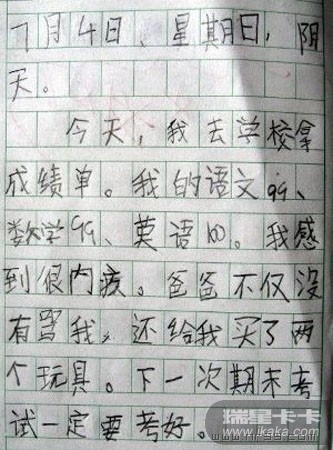 7月4日、星期日,阴
天。
今天,我去学校拿
成绩单。我的语文99、
数学99、英语100。我感
到很内疚。爸爸不仅没
有骂我,还给我买了两
个玩具。下一次期末考
试一定要考好。
瑞星卡卡
www.ikaka.com